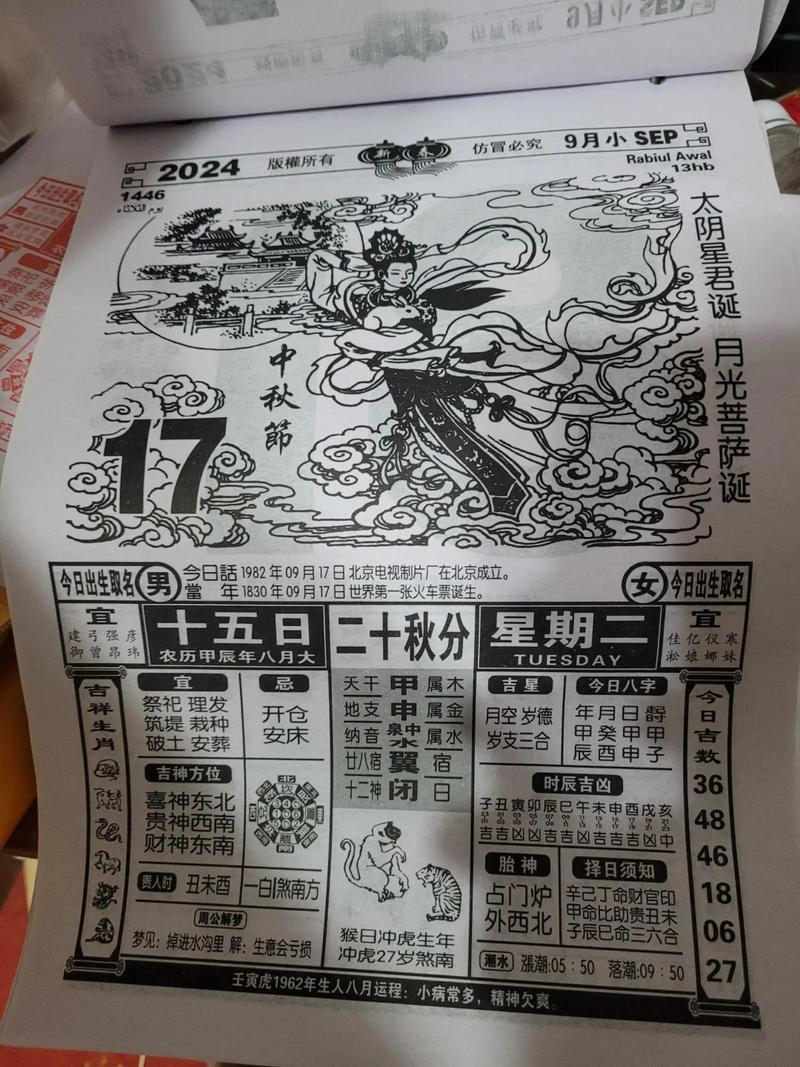 2024 版權所有 新春 仿冒必究 9月小 SEP
1446
Rabiul Awal
13hb
太阴星君诞 月光菩萨诞
中秋節
17
今日出生取名 男
今日話當年
1982年09月17日北京电视制片厂在北京成立。
1830年09月17日世界第一张火车票诞生。
女 今日出生取名
宜
建弓强彦
御曾昂玮
十五日
农历甲辰年八月大
二十秋分
星期二
TUESDAY
宜
佳亿仪寒
淞娘娜妹
吉祥生肖
宜
祭祀 理发
筑堤 栽种
破土 安葬
忌
开仓
安床
吉神方位
喜神东北
贵神西南
财神东南
北
南
贵人时 丑未酉
一白 煞南方
周公解梦
梦见：掉进水沟里 解：生意会亏损
天干 甲 属木
地支 申 属金
纳音 泉中水 属水
廿八宿 翼 宿
十二神 闭 日
猴日冲虎生年
冲虎27岁煞南
吉星
月空 岁德
岁支三合
今日八字
年月日时
甲癸甲甲
辰酉申子
时辰吉凶
子丑寅卯辰巳午未申酉戌亥
吉吉凶凶吉吉凶吉凶凶吉中
胎神
占门炉
外西北
择日须知
辛己丁命财官印
甲命比助贵丑未
子辰巳命三六合
潮水 漲潮:05:50 落潮:09:50
今日吉数
36
48
46
18
06
27
壬寅虎1962年生人八月运程：小病常多，精神欠爽。